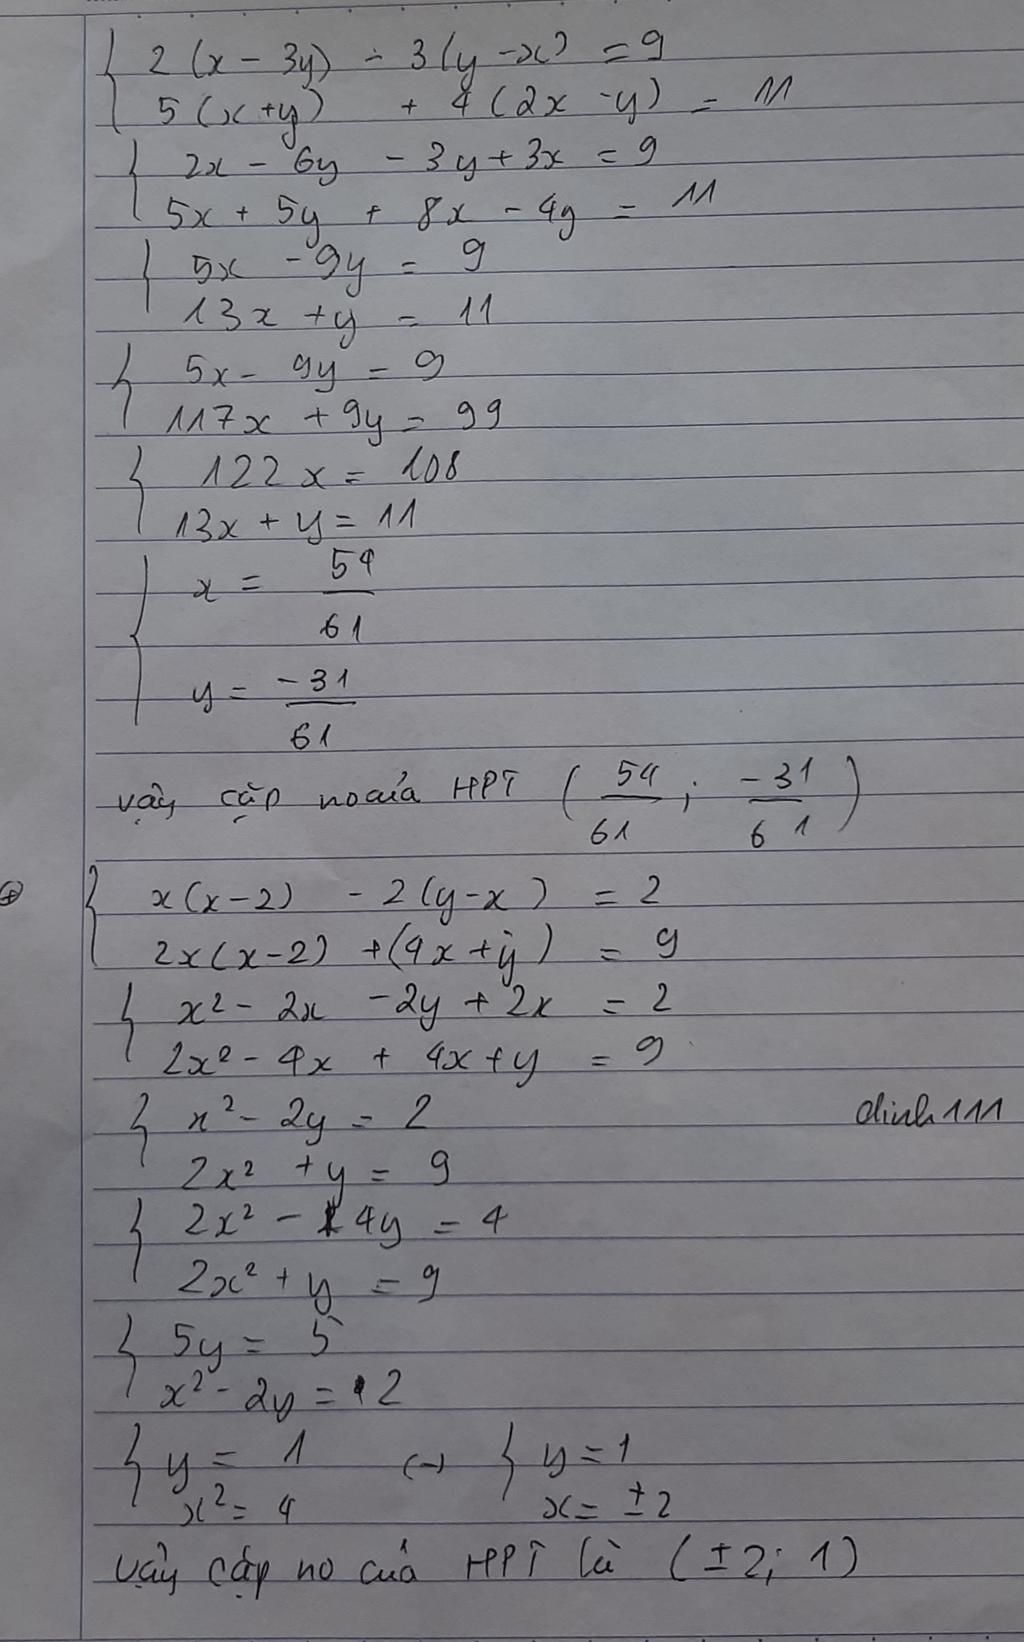 { 2 (x - 3y) - 3(y - x) = 9
5 (x + y) + 4 (2x - y) = 11
{ 2x - 6y - 3y + 3x = 9
5x + 5y + 8x - 4y = 11
{ 5x - 9y = 9
13x + y = 11
{ 5x - 9y = 9
117x + 9y = 99
{ 122x = 108
13x + y = 11
{ x = 54/61
y = -31/61
vậy cặp no của HPT ( 54/61 ; -31/61 )
⊕ { x(x - 2) - 2(y - x) = 2
2x(x - 2) + (4x + y) = 9
{ x² - 2x - 2y + 2x = 2
2x² - 4x + 4x + y = 9
{ x² - 2y = 2
dinh111
2x² + y = 9
{ 2x² - 4y = 4
2x² + y = 9
{ 5y = 5
x² - 2y = 2
{ y = 1 (-) { y = 1
x² = 4 x = ±2
vậy cặp no của HPT là (±2; 1)